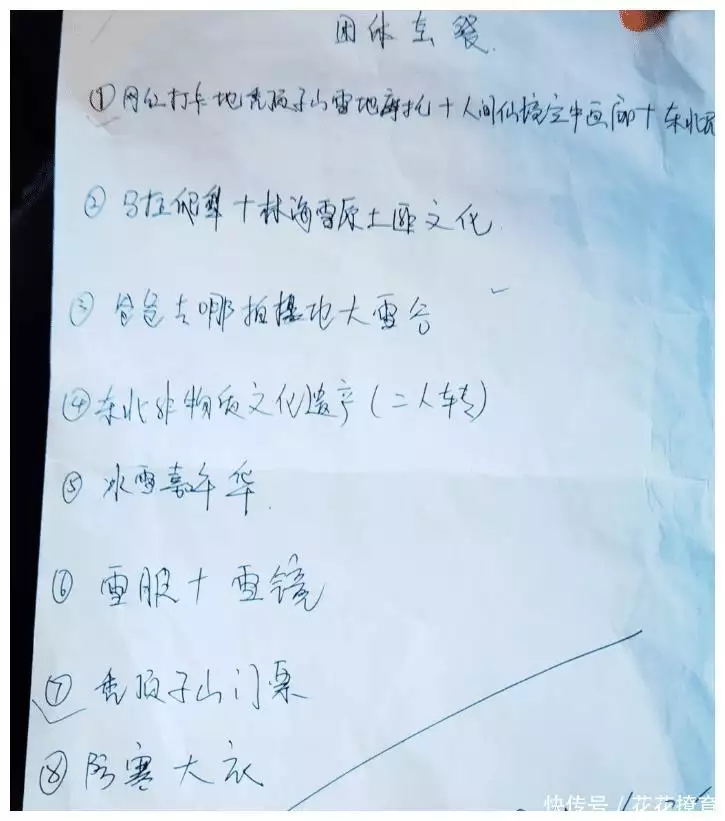 团体套餐
①网红打卡地秃顶子山雪地摩托+人间仙境空中画廊+东北民
②马拉爬犁+林海雪原土匪文化
③爸爸去哪拍摄地大雪谷
④东北非物质文化遗产(二人转)
⑤冰雪嘉年华.
⑥雪服+雪镜
⑦秃顶子山门票
⑧防寒大衣
快传号/花花撩育